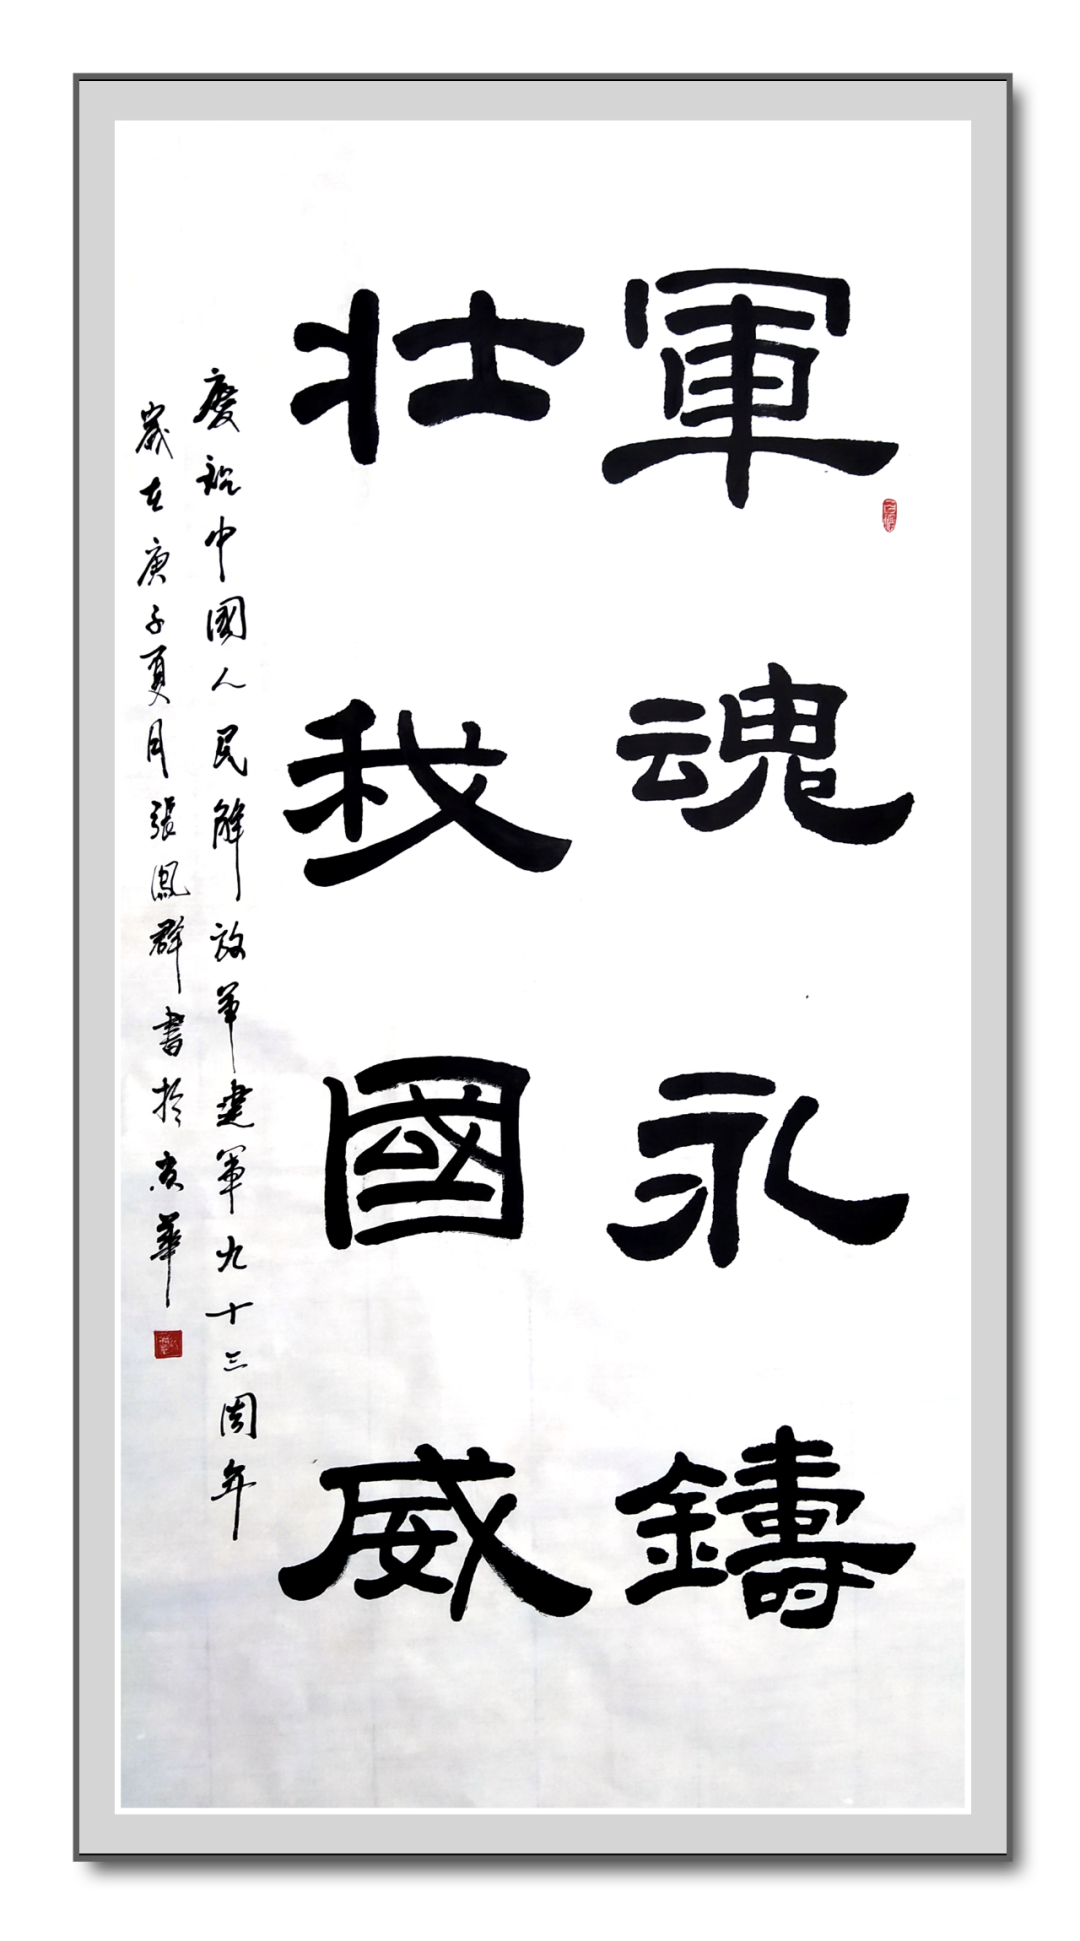 軍魂永鑄
壯我國威
慶祝中國人民解放軍建軍九十三周年
歲在庚子夏月張鳳群書於京華